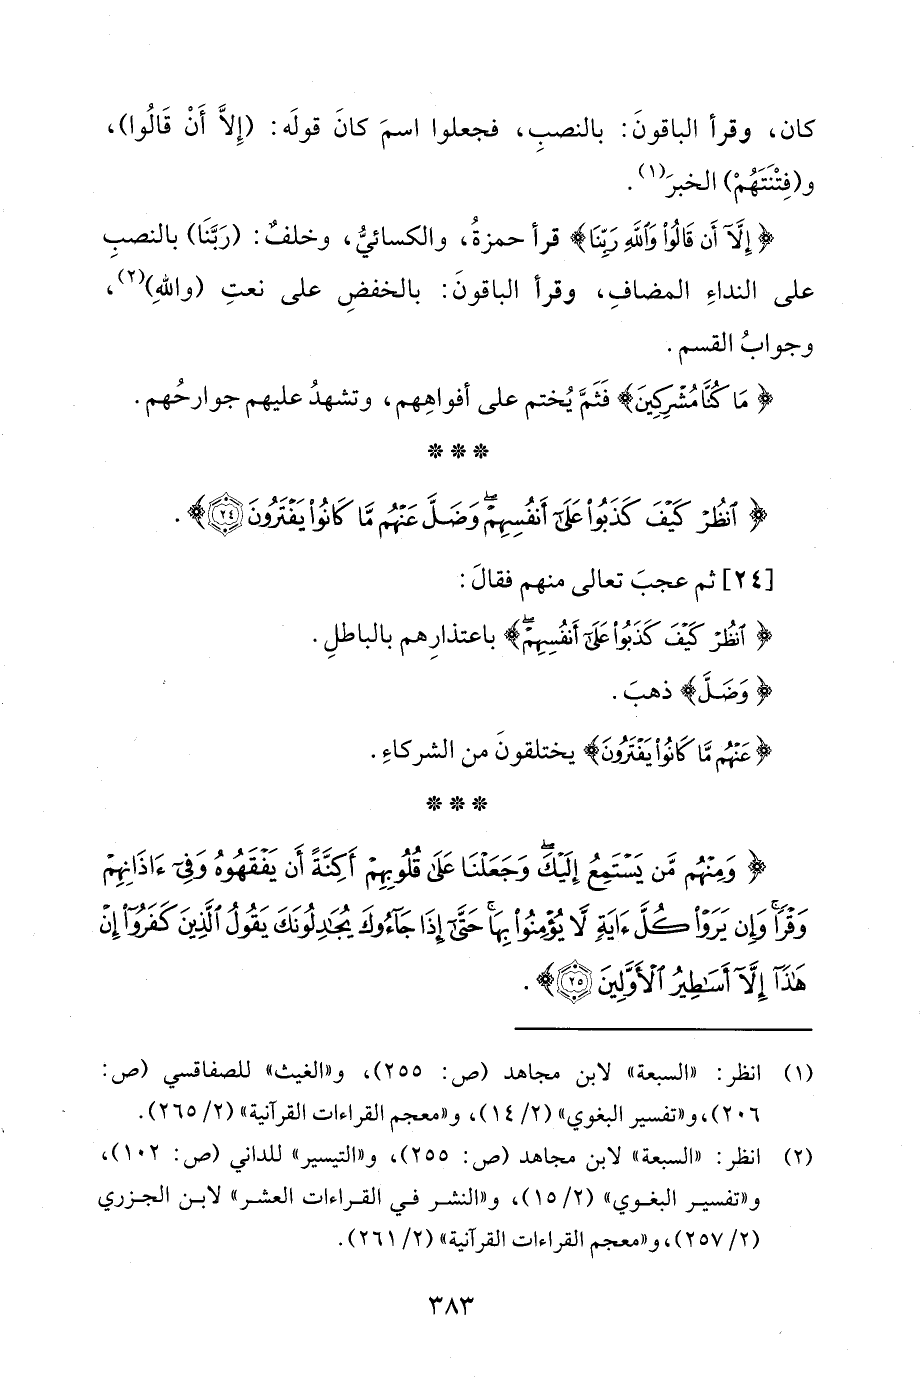 كان، وقرأ الباقونَ: بالنصبِ، فجعلوا اسمَ كانَ قولَه: (إِلاَّ أَنْ قَالُوا)،
و(فِتْنَتَهُمْ) الخبرَ(١).
﴿إِلَّآ أَن قَالُوا۟ وَٱللَّهِ رَبِّنَا﴾ قرأ حمزةُ، والكسائيُّ، وخلفٌ: (رَبَّنَا) بالنصبِ
على النداءِ المضافِ، وقرأ الباقونَ: بالخفضِ على نعتِ (واللهِ)(٢)،
وجوابُ القسم.
﴿مَا كُنَّا مُشْرِكِينَ﴾ فَثَمَّ يُختم على أفواهِهم، وتشهدُ عليهم جوارحُهم.
* * *
﴿ٱنظُرْ كَيْفَ كَذَبُوا۟ عَلَىٰٓ أَنفُسِهِمْ ۖ وَضَلَّ عَنْهُم مَّا كَانُوا۟ يَفْتَرُونَ ٢٤﴾.
[٢٤] ثم عجبَ تعالى منهم فقالَ:
﴿ٱنظُرْ كَيْفَ كَذَبُوا۟ عَلَىٰٓ أَنفُسِهِمْ ۖ﴾ باعتذارِهم بالباطلِ.
﴿وَضَلَّ﴾ ذهبَ.
﴿عَنْهُم مَّا كَانُوا۟ يَفْتَرُونَ﴾ يختلقونَ من الشركاءِ.
* * *
﴿وَمِنْهُم مَّن يَسْتَمِعُ إِلَيْكَ ۖ وَجَعَلْنَا عَلَىٰ قُلُوبِهِمْ أَكِنَّةً أَن يَفْقَهُوهُ وَفِىٓ ءَاذَانِهِمْ
وَقْرًا ۚ وَإِن يَرَوْا۟ كُلَّ ءَايَةٍ لَّا يُؤْمِنُوا۟ بِهَا ۚ حَتَّىٰٓ إِذَا جَآءُوكَ يُجَٰدِلُونَكَ يَقُولُ ٱلَّذِينَ كَفَرُوٓا۟ إِنْ
هَٰذَآ إِلَّآ أَسَٰطِيرُ ٱلْأَوَّلِينَ ٢٥﴾.
(١) انظر: «السبعة» لابن مجاهد (ص: ٢٥٥)، و«الغيث» للصفاقسي (ص:
٢٠٦)، و«تفسير البغوي» (٢/ ١٤)، و«معجم القراءات القرآنية» (٢/ ٢٦٥).
(٢) انظر: «السبعة» لابن مجاهد (ص: ٢٥٥)، و«التيسير» للداني (ص: ١٠٢)،
و«تفسير البغوي» (٢/ ١٥)، و«النشر في القراءات العشر» لابن الجزري
(٢/ ٢٥٧)، و«معجم القراءات القرآنية» (٢/ ٢٦١).
٣٨٣